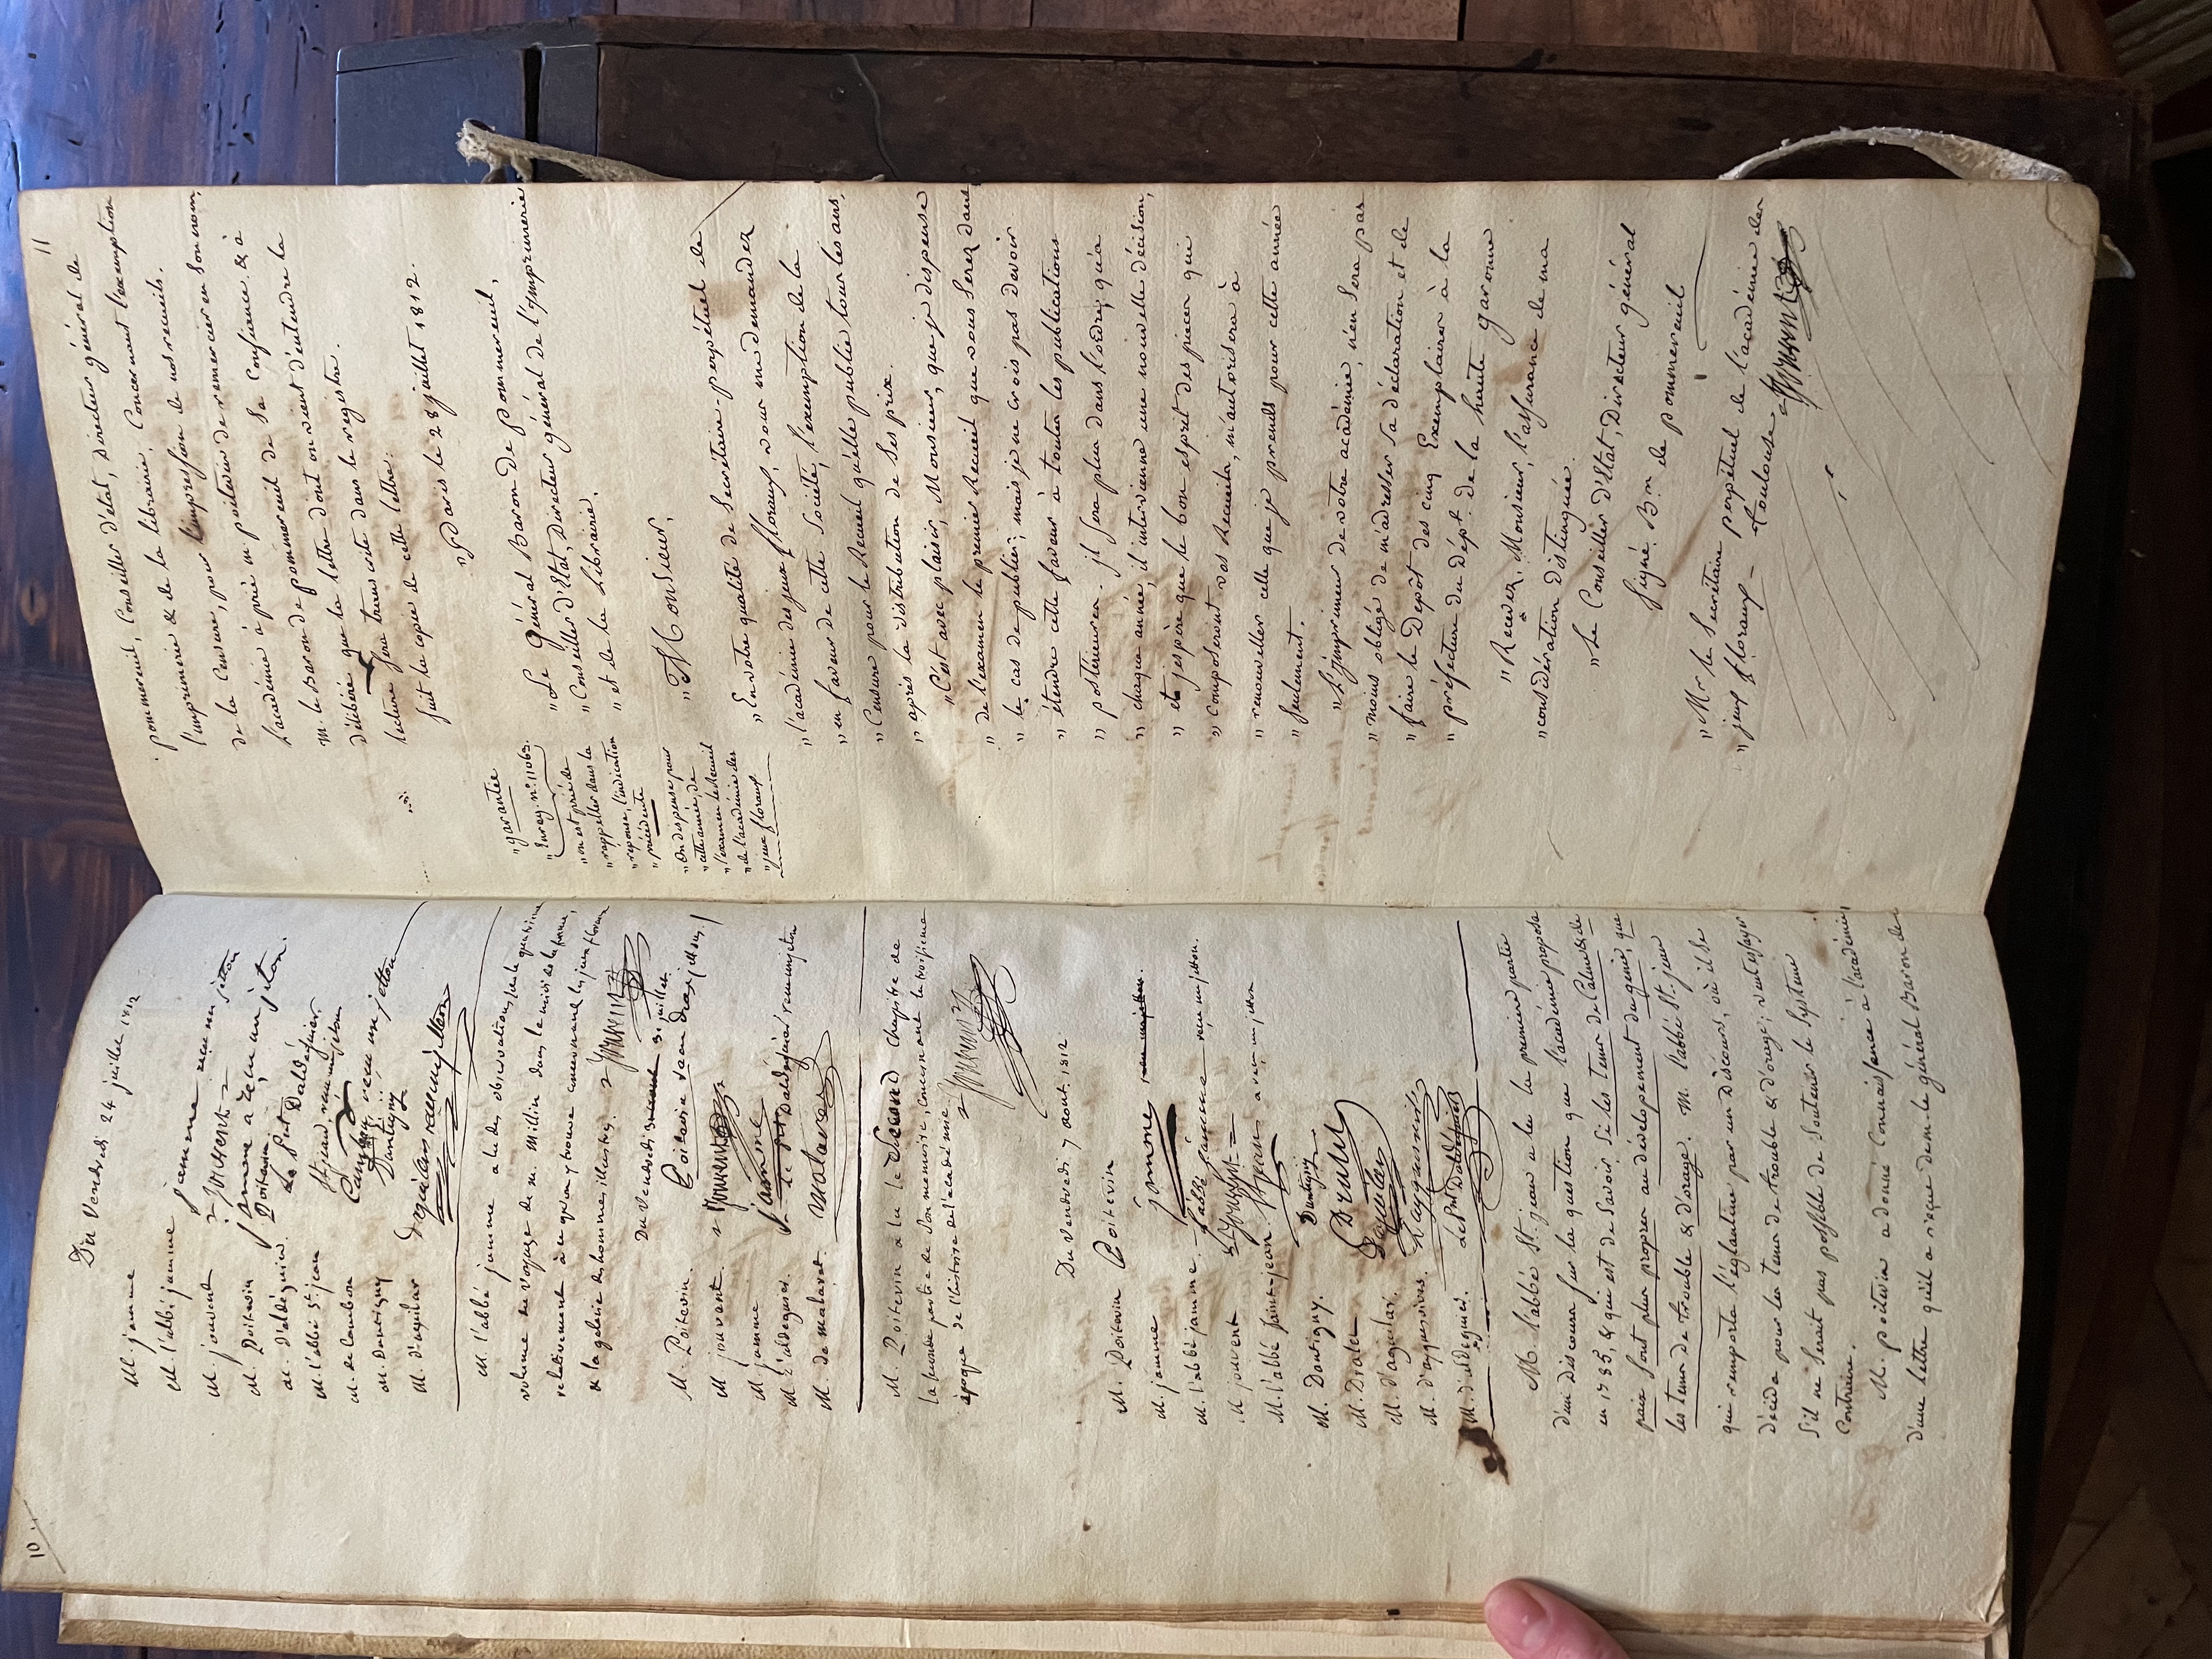 10
Du Vendredi 24 juillet 1812
M. jamme jamme reçu un jetton
M. l'abbé jamme
M. jouvent jouvent
M. Poitevin Poitevin
M. d'aldéguier. Le Pt Daldéguier
M. l'abbé St. jean St jean, reçu un jetton
M. de Cambon Cambon reçu un jetton
M. Dantigny Dantigny
M. d'aguilar d'aguilar reçu un jetton
M. l'abbé jamme a lu des observations sur le quatrieme
volume du voyage de M. Millin dans le midi de la france,
relativement à ce qu'on y trouve concernant les jeux floraux
& la galerie des hommes illustres. jouvent
Du Vendredi 31 juillet.
M. Poitevin. Poitevin
M. jouvent. jouvent
M. jamme jamme
M. d'aldeguier. Le Pt Daldéguier reçu un jetton
M. de malaret. malaret
M. Poitevin a lu le Second Chapitre de
la seconde partie de Son memoire, Concernant la troisieme
époque de l'histoire de l'académie. jouvent
Du Vendredi 7 aout 1812
M. Poitevin Poitevin
M. jamme jamme
M. l'abbé jamme. l'abbé jamme reçu un jetton.
M. jouvent jouvent
M. l'abbé Saint-jean St jean a reçu un jetton
M. Dantigny. Dantigny
M. Dralet Dralet
M. d'aguilar. d'aguilar
M. d'ayguesvives. d'ayguesvives
M. d'aldeguier. Le Pt Daldéguier
M. l'abbé St. jean a lu la premiere partie
d'un discours sur la question que l'académie proposa
en 1785, & qui est de Savoir Si les tems de Calme & de
paix sont plus propres au dévelopement du génie, que
les tems de trouble & d'orage. M. l'abbé St. jean
qui remporta l'églantine par un Discours, où il se
décida pour les tems de trouble & d'orage, veut essayer
S'il ne serait pas possible de Soutenir le Systeme
Contraire.
M. poitevin a donné Connaissance à l'académie,
d'une lettre qu'il a reçue de M. le général Baron de
11
pommereuil, Conseiller d'état, Directeur général de
l'imprimerie & de la librairie, Concernant l'exemption
de la Censure, pour l'impression de nos recueils.
l'académie a prié m. poitevin de remercier en Son nom,
m. le Baron de pommereuil de Sa Confiance, & a
délibéré que la lettre dont on vient d'entendre la
lecture sera transcrite dans le registre.
Suit la copie de cette lettre:
"Paris le 28 juillet 1812.
"garantie
"Enreg. n.° 11065.
"on est prié de
"rappeller dans la
"reponse, l'indication
"précédente
"On dispense pour
"cette année, de
"l'examen le Recueil
"de l'académie des
"jeux floraux
"Le Général Baron de pommereuil,
"Conseiller d'Etat, Directeur général de l'Imprimerie
"et de la Librairie.
"Monsieur,
"En votre qualité de Secrétaire-perpétuel de
"l'académie des jeux floraux, vous me demandez
"en faveur de cette Société, l'exemption de la
"Censure pour le Recueil qu'elle publie tous les ans,
"après la distribution de Ses prix.
"C'est avec plaisir, Monsieur, que je dispense
"de l'examen le premier Recueil que vous Serez dans
"le cas de publier; mais je ne crois pas devoir
"étendre cette faveur à toutes les publications
"postérieures. il sera plus dans l'ordre, qu'à
"chaque année, il intervienne une nouvelle décision,
"et j'espère que le bon esprit des pieces qui
"composeront vos Recueils, m'autorisera à
"renouveller celle que je prends pour cette année
"Seulement.
"L'imprimeur de votre académie, n'en Sera pas
"moins obligé de m'adresser Sa déclaration et de
"faire le Dépôt des cinq Exemplaires à la
"préfecture du Dépt. de la haute garonne
"Recevez, Monsieur, l'assurance de ma
"considération distinguée.
"Le Conseiller d'Etat, Directeur général
Signé. B.on de pommereuil
"Mr le Secrétaire perpétuel de l'académie des
"jeux floraux – toulouse jouvent